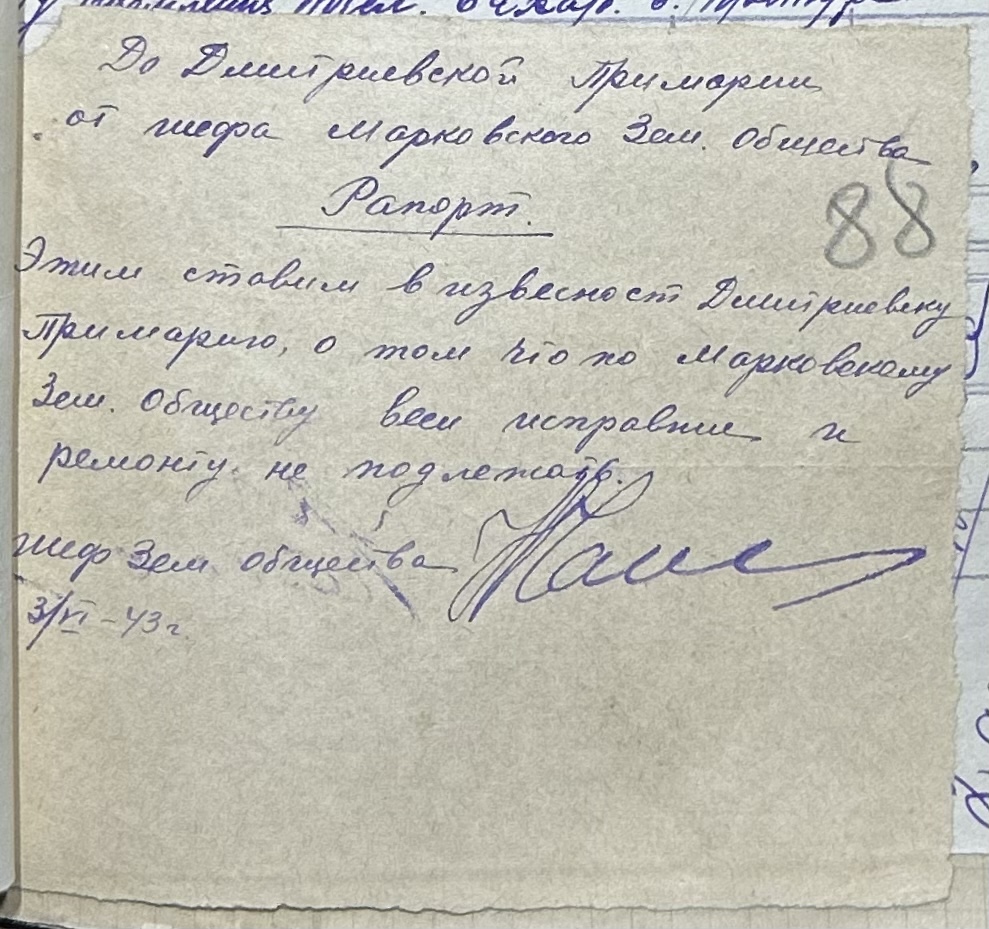 До Дмитриевской Примарии
от шефа Марковского Зем. Общества
Рапорт.
88
Этим ставим в извесност Дмитриевску
Примарию, о том что по Марковскому
Зем. Обществу веси исправни и
ремонту не подлежать.
шеф Зем. общества
3/VI – 43 г.